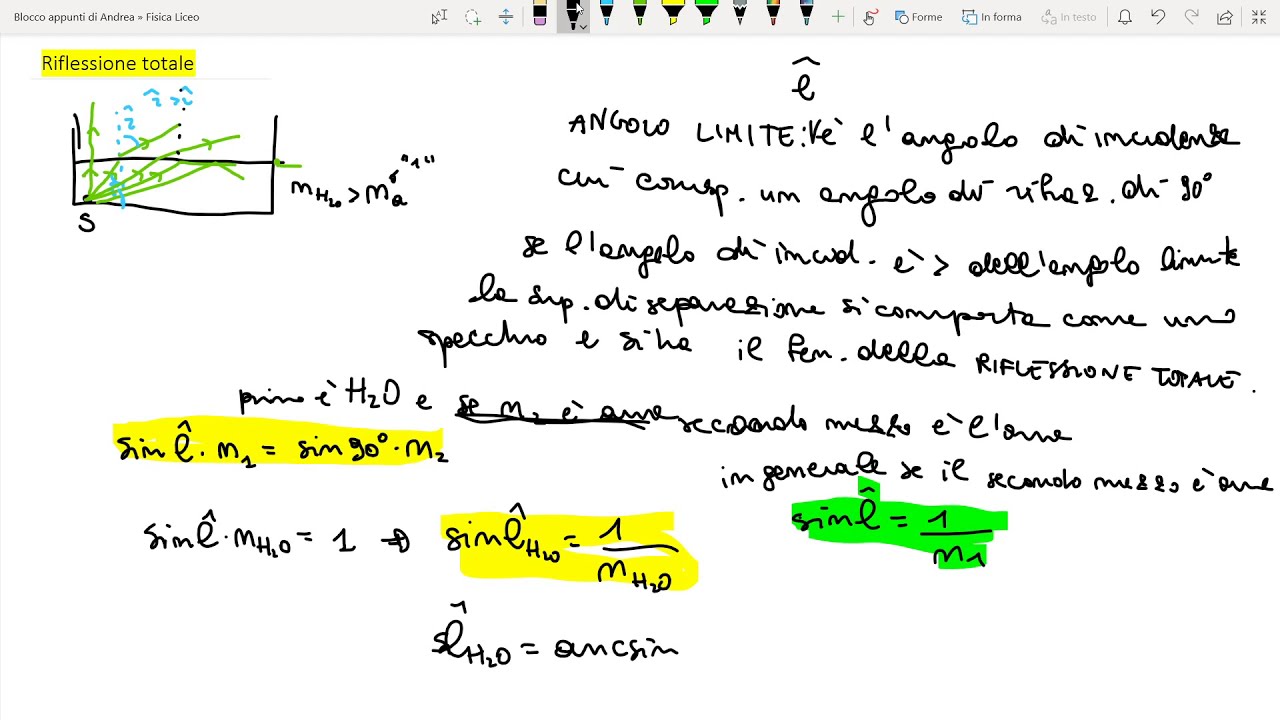 Blocco appunti di Andrea » Fisica Liceo
Forme
In forma
In testo
Riflessione totale
r̂ > î
r̂
S
n_H₂O > n_a "1"
l̂
ANGOLO LIMITE: è l'angolo di incidenza
cui corrisp. un angolo di rifraz. di 90°
se l'angolo di incid. è > dell'angolo limite
la sup. di separazione si comporta come uno
specchio e si ha il fen. della RIFLESSIONE TOTALE.
primo è H₂O e se n₂ è aria secondo mezzo è l'aria
sin l̂ · n₁ = sin 90° · n₂
in generale se il secondo mezzo è aria
sin l̂ = 1/n₁
sin l̂ · n_H₂O = 1 ⇒ sin l̂_H₂O = 1/n_H₂O
l̂_H₂O = arcsin